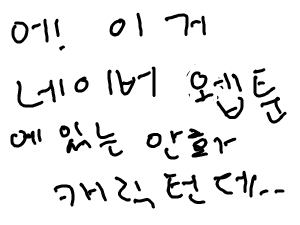 어! 이거
네이버 웹툰
에 있는 안호가
캐릭턴데..